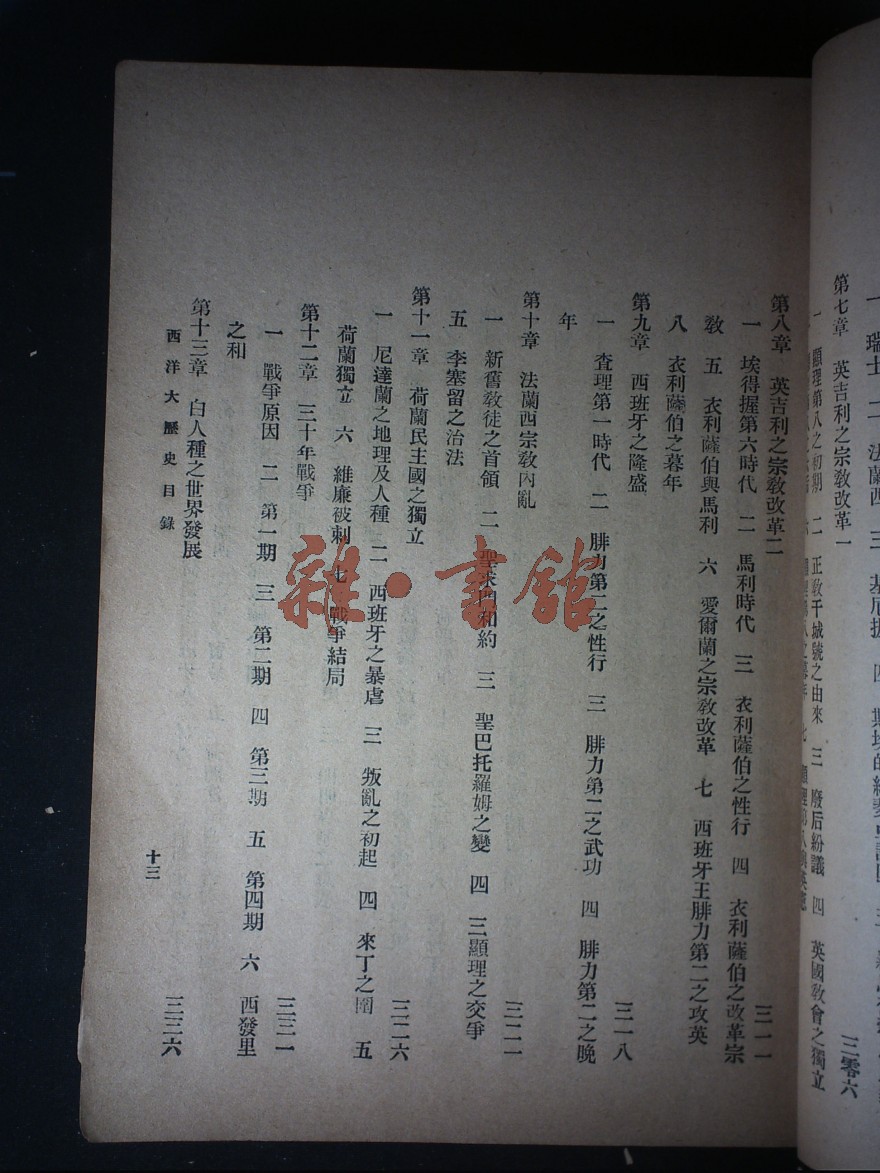 一 瑞士 二 法蘭西 三
第七章 英吉利之宗教改革一 三零六
一 顯理第八之初期 二 正教干城號之由來 三 廢后紛議 四 英國教會之獨立
第八章 英吉利之宗教改革二 三一一
一 埃得握第六時代 二 馬利時代 三 衣利薩伯之性行 四 衣利薩伯之改革宗
教 五 衣利薩伯與馬利 六 愛爾蘭之宗教改革 七 西班牙王腓力第二之攻英
八 衣利薩伯之暮年
第九章 西班牙之隆盛 三一八
一 查理第一時代 二 腓力第二之性行 三 腓力第二之武功 四 腓力第二之晚
年
第十章 法蘭西宗教內亂 三二一
一 新舊教徒之首領 二 和約 三 聖巴托羅姆之變 四 三顯理之交爭
五 李塞留之治法
第十一章 荷蘭民主國之獨立 三二六
一 尼達蘭之地理及人種 二 西班牙之暴虐 三 叛亂之初起 四 來丁之圍 五
荷蘭獨立 六 維廉被刺 七 戰爭結局
第十二章 三十年戰爭 三三一
一 戰爭原因 二 第一期 三 第二期 四 第三期 五 第四期 六 西發里
之和
第十三章 白人種之世界發展 三三六
西洋大歷史目錄
十三
雜·書館